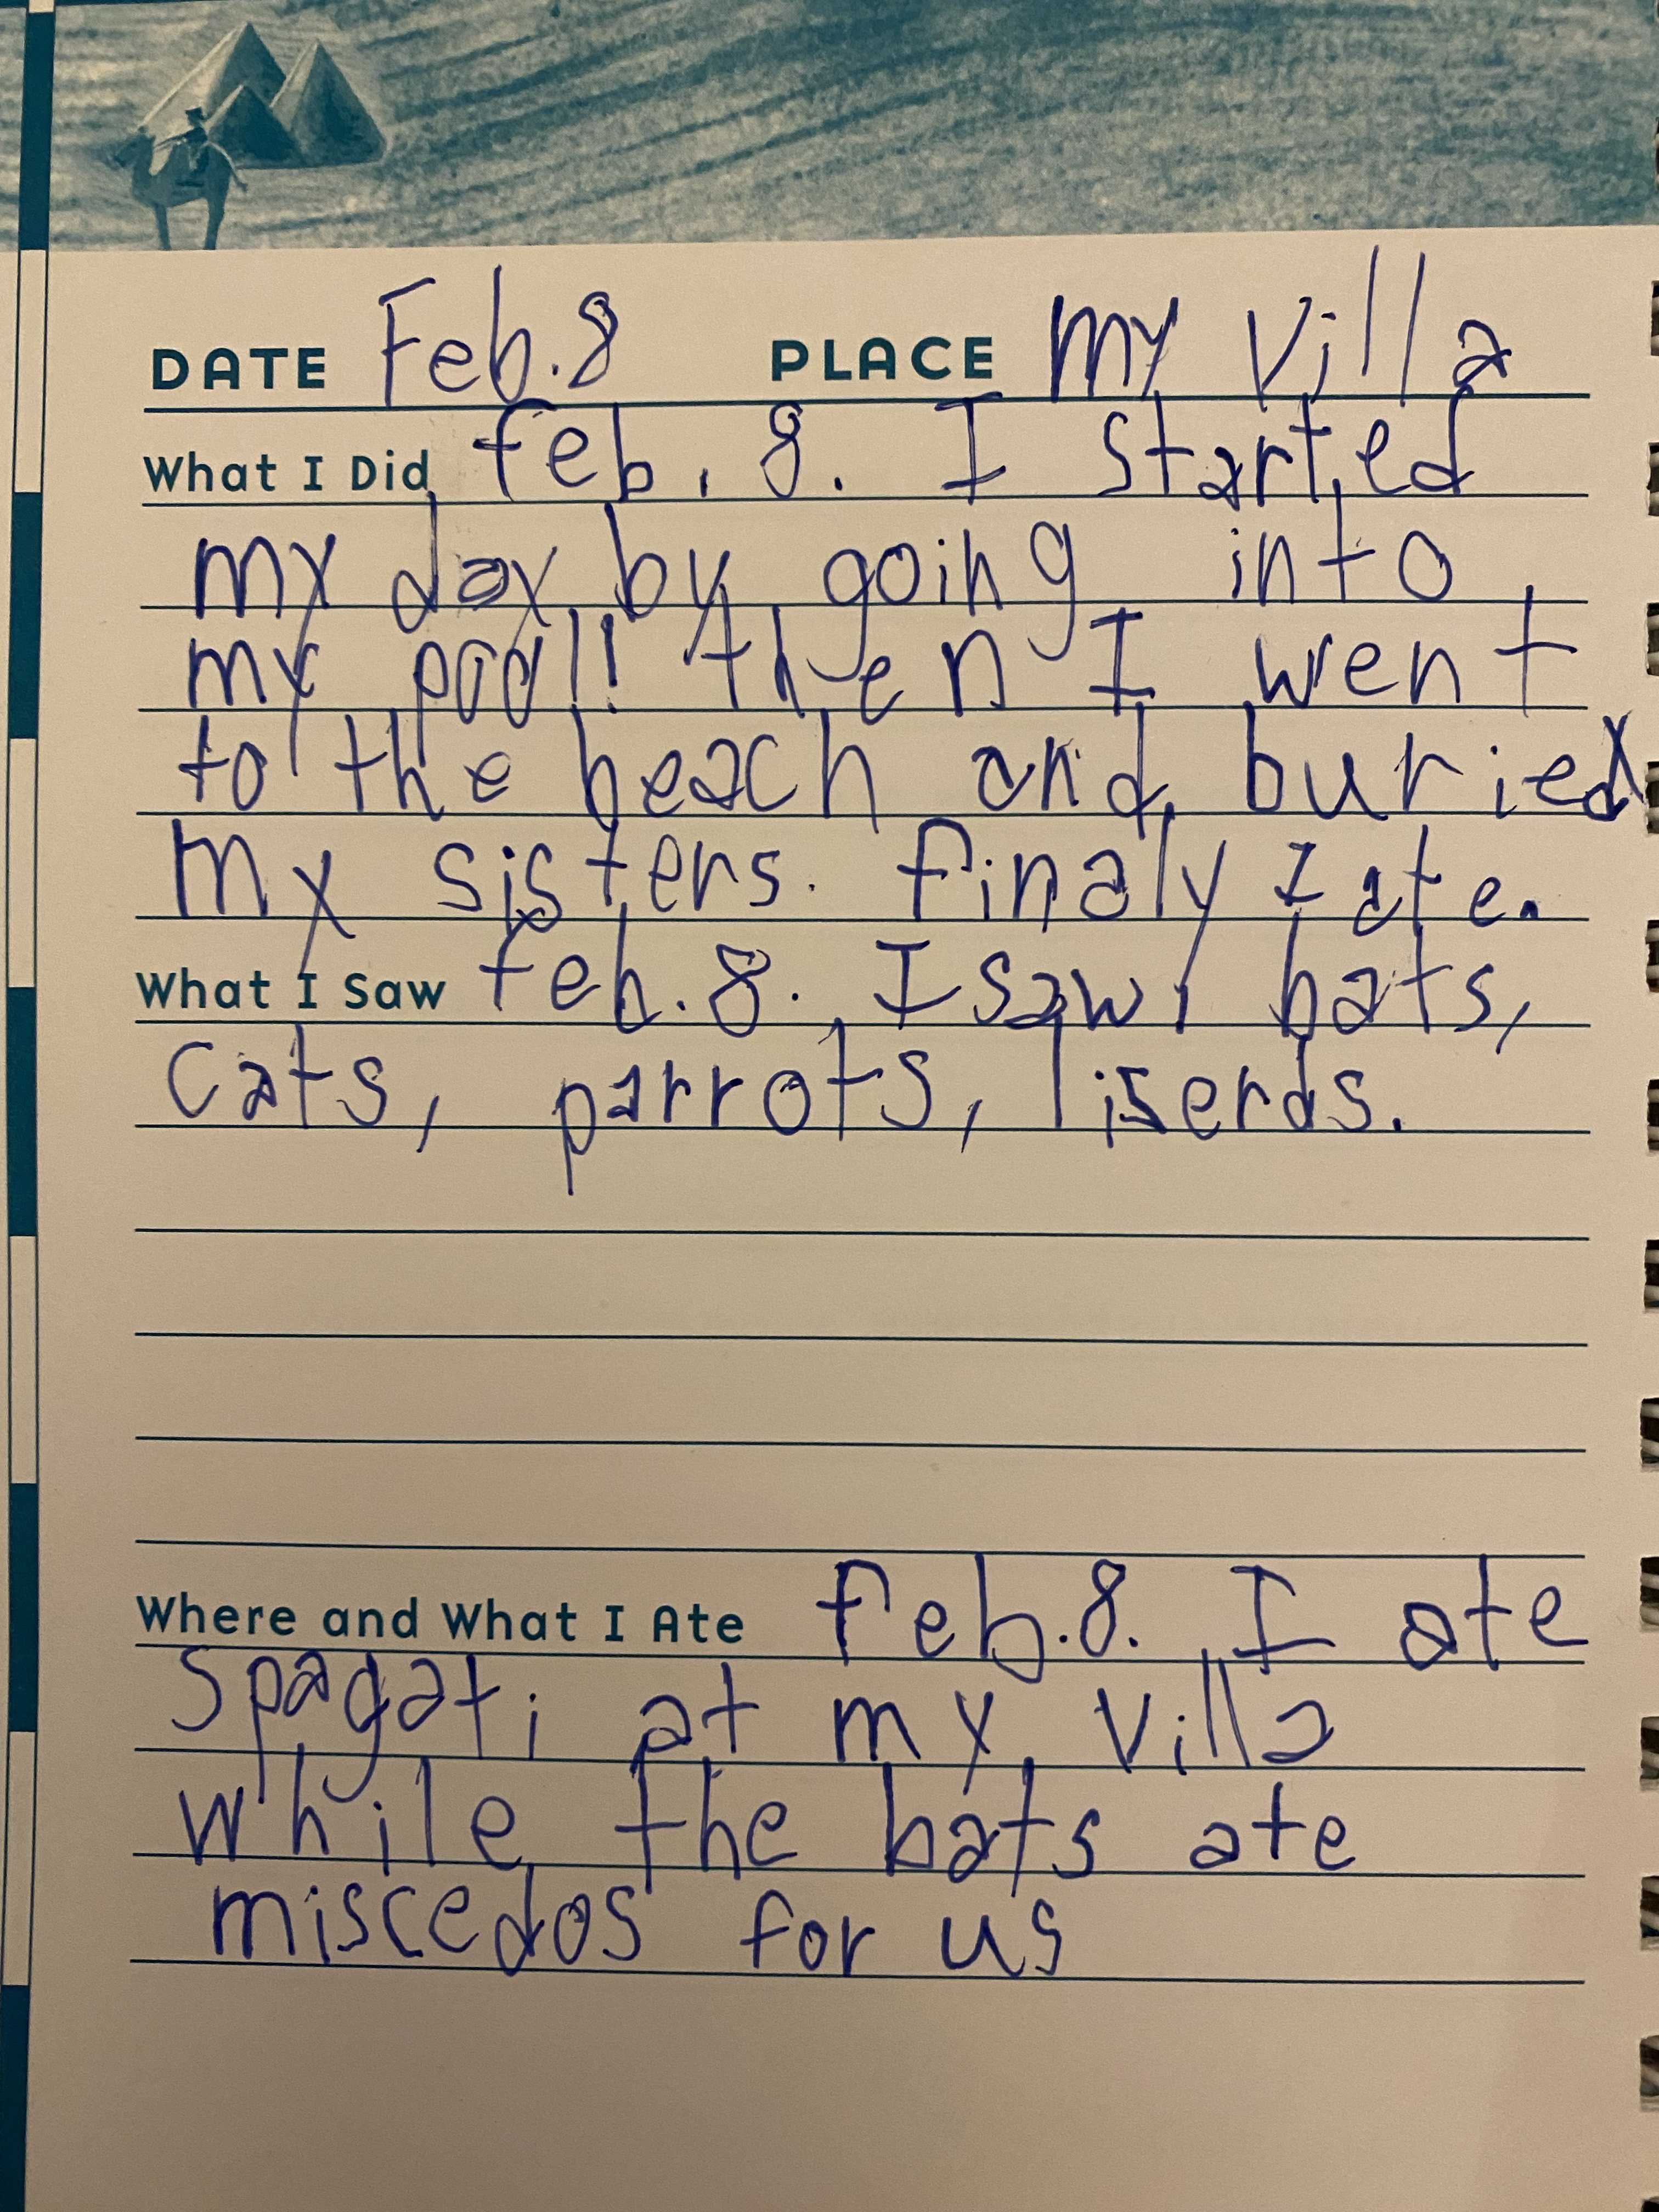 DATE Feb.8 PLACE my villa
What I Did feb. 8. I started
my day by going into
my pool! then I went
to the beach and buried
my sisters. finaly I ate.
What I Saw feb.8. I saw bats,
cats, parrots, liserds.
Where and What I Ate feb.8. I ate
spagati at my villa
while the bats ate
miscedos for us